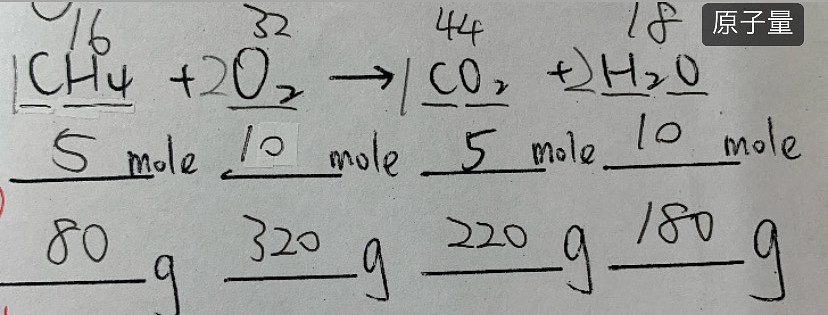 16 32 44 18 原子量
1CH4 + 2O₂ → 1CO₂ + 2H₂O
5 mole 10 mole 5 mole 10 mole
80 g 320 g 220 g 180 g